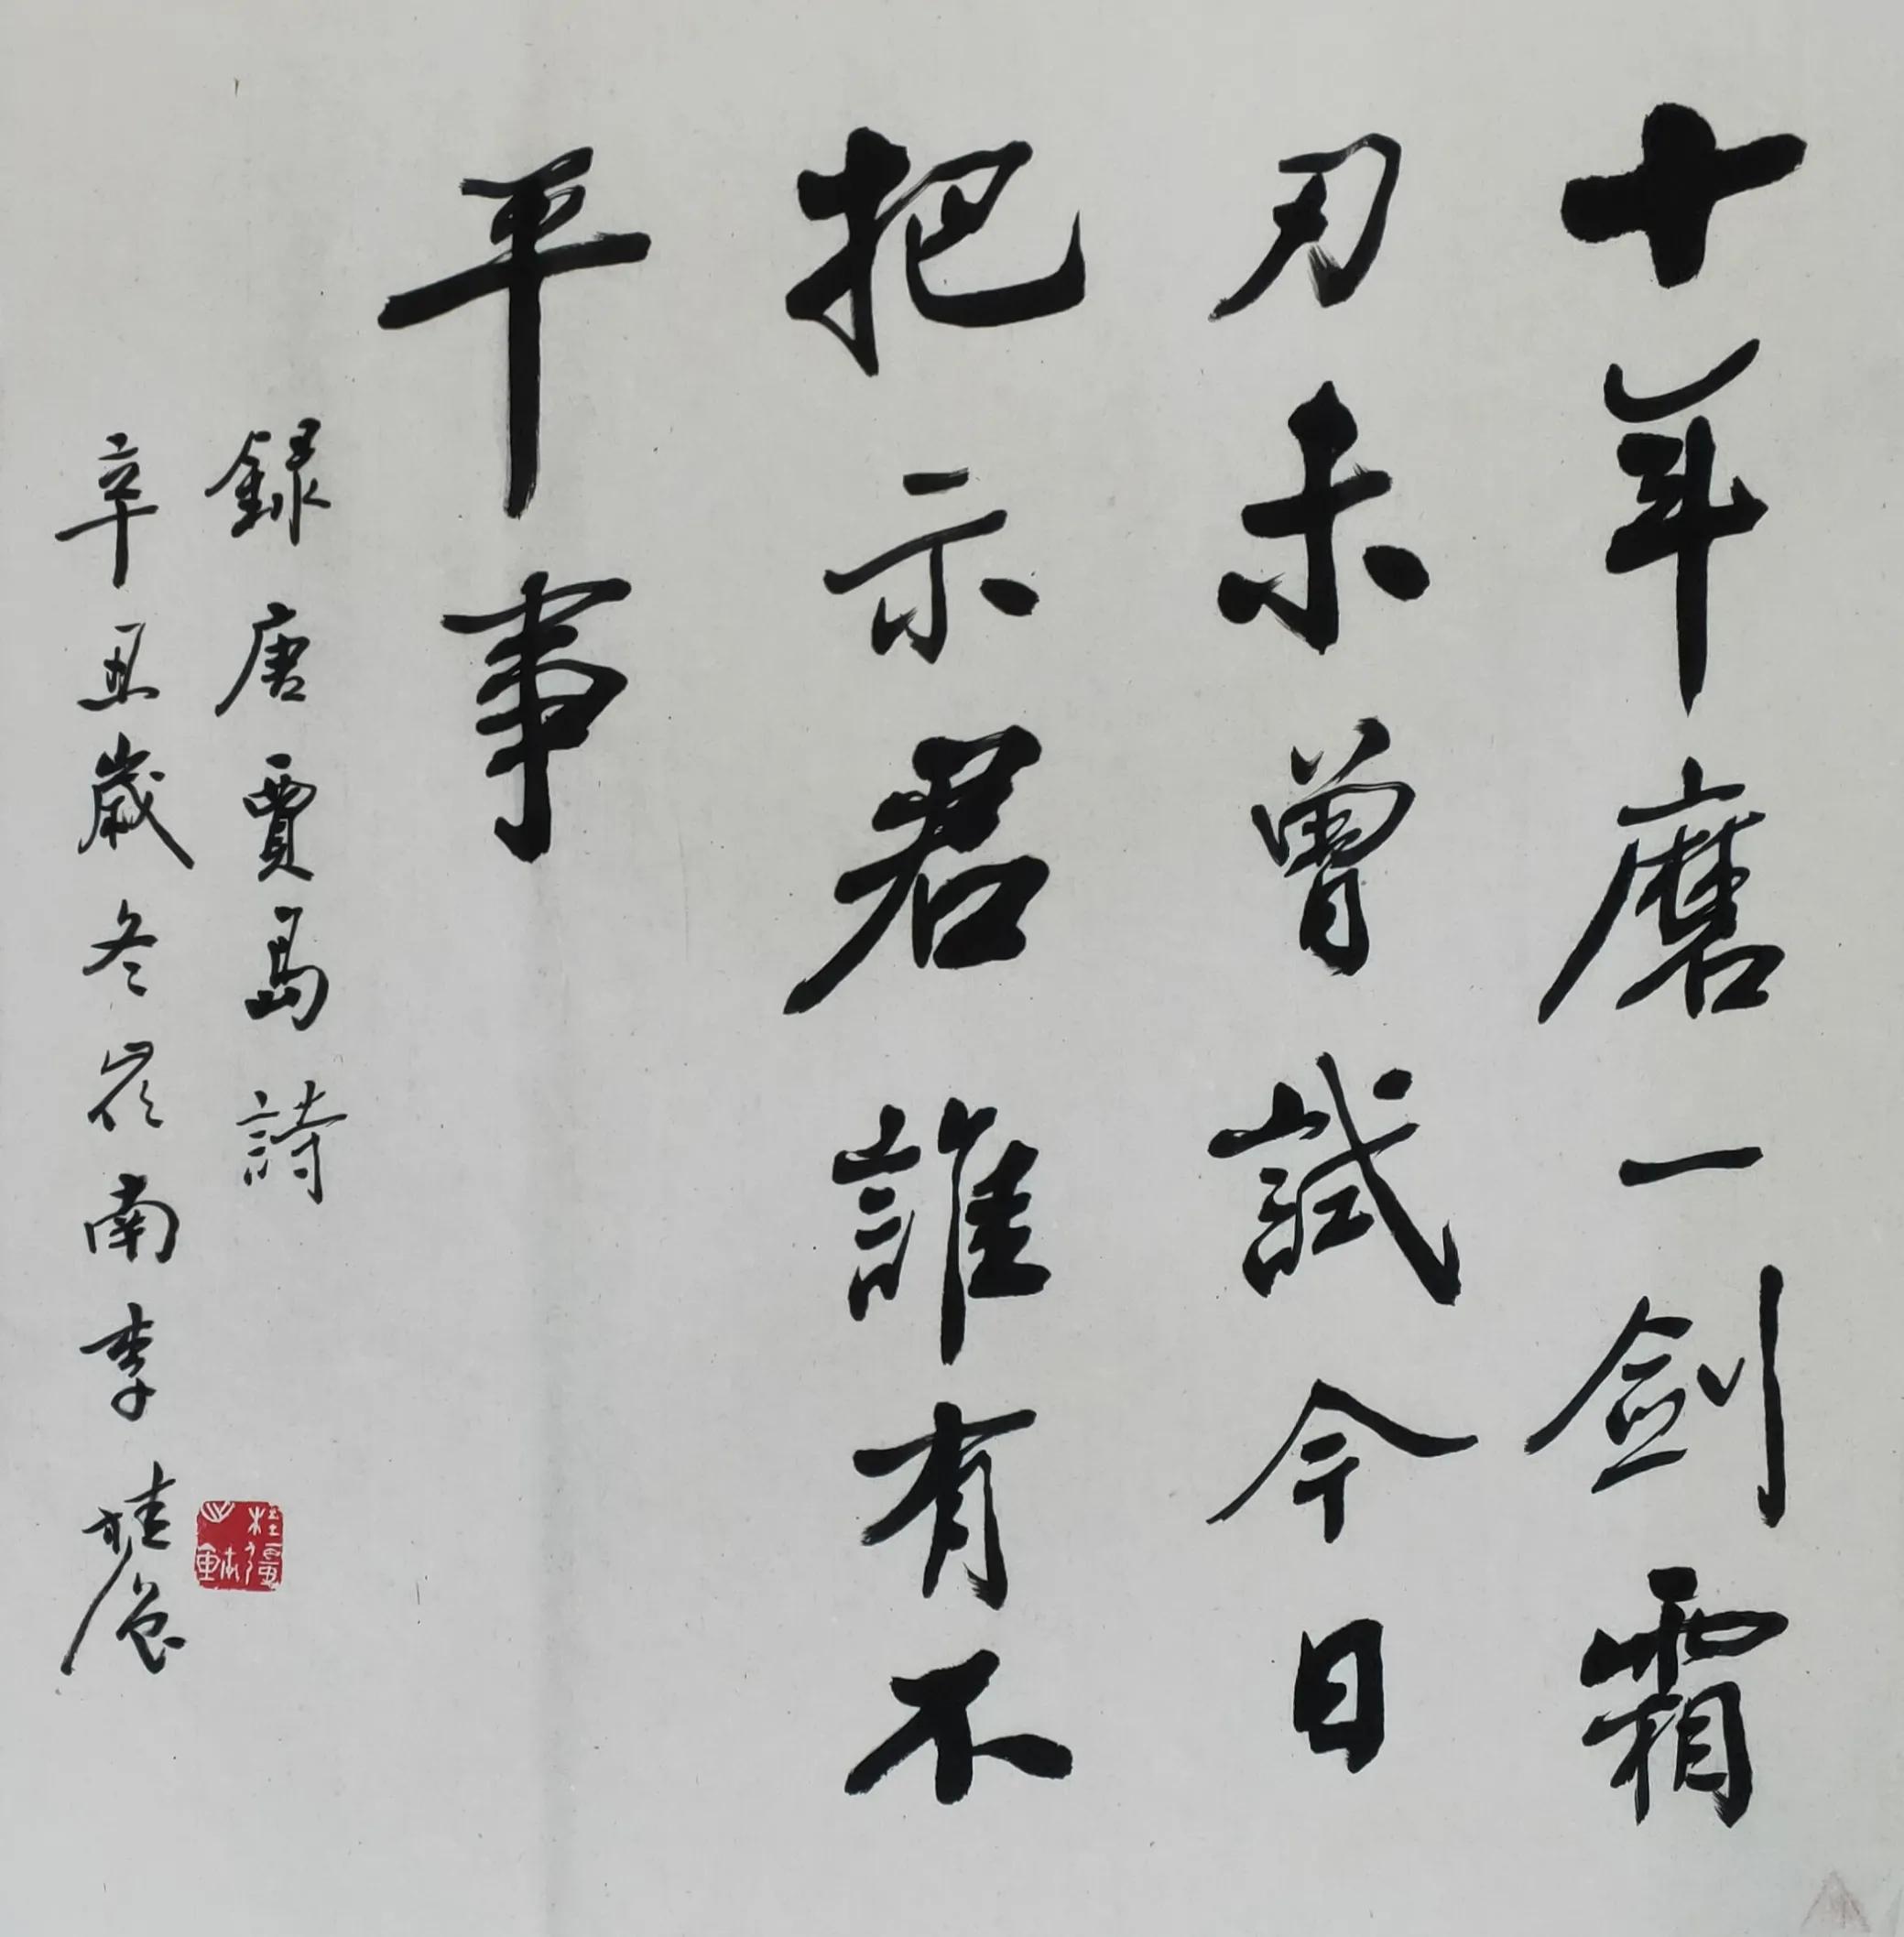 十年磨一剑霜
刃未曾試今日
把示君誰有不
平事
録唐賈島詩
辛丑歲冬岭南李桂